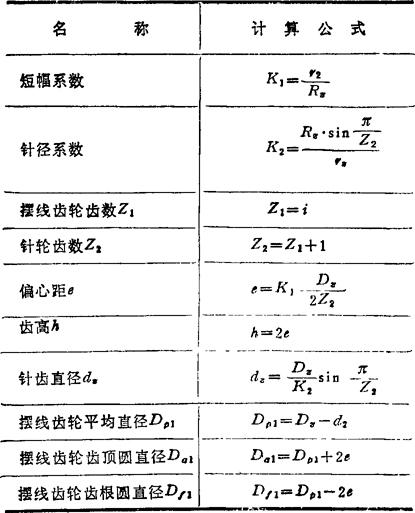 名 称 计 算 公 式
短幅系数 K₁=r₂/R_z
针径系数 K₂=(R_z·sin π/Z₂)/r_z
摆线齿轮齿数Z₁ Z₁=i
针轮齿数Z₂ Z₂=Z₁+1
偏心距e e=K₁ D_z/2Z₂
齿高h h=2e
针齿直径d_z d_z=D_z/K₂ sin π/Z₂
摆线齿轮平均直径D_p1 D_p1=D_z-d_z
摆线齿轮齿顶圆直径D_a1 D_a1=D_p1+2e
摆线齿轮齿根圆直径D_f1 D_f1=D_p1-2e